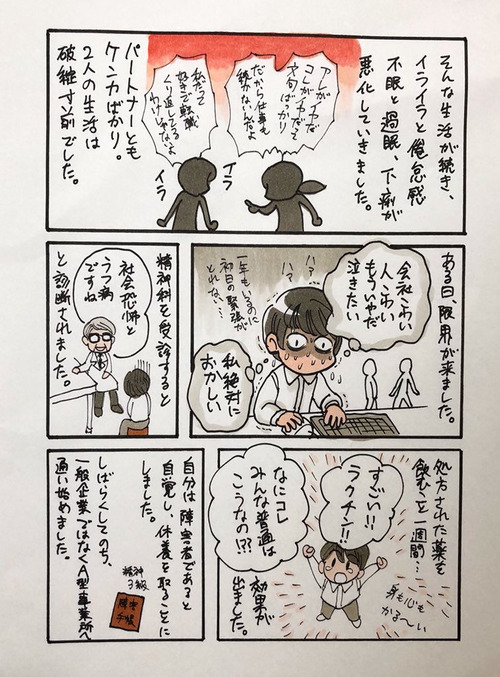 そんな生活が続き、
イライラと倦怠感
不眠と過眠、下痢が
悪化していきました。
アレがイヤだ
コレがイヤだって
文句ばっかり
だから仕事も
続かないんだよ
私だって
好きで転職
くり返してる
わけじゃないよ
イラ
イラ
パートナーとも
ケンカばかり。
2人の生活は
破綻寸前でした。
ある日、限界が来ました。
会社こわい
人こわい
もういやだ
泣きたい
ハァ
ハァ
一年もいるのに
初日の緊張が
とれない…
私絶対に
おかしい
精神科を受診すると
社会恐怖と
うつ病
ですね
と診断されました。
処方された薬を
飲むこと一週間…
すごい!!
ラクチン!!
なにコレ
みんな普通は
こうなの!?
身も心も
かる〜い
効果が
出ました。
自分は障害者であると
自覚し、休養を取ることに
しました。
精神
3級
障害
手帳
しばらくしてのち、
一般企業ではなくA型事業所へ
通い始めました。